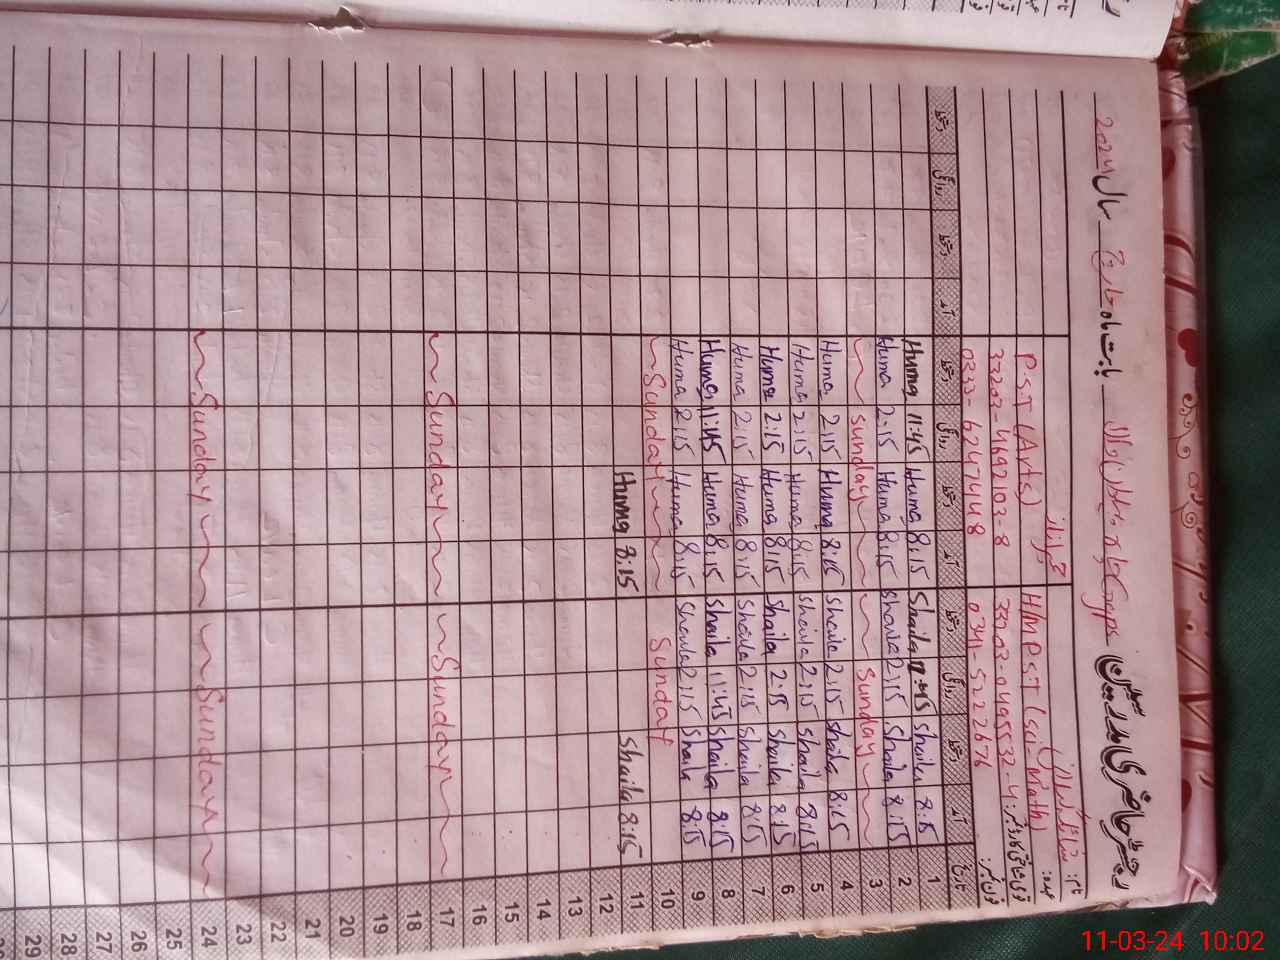 رجسٹر حاضری مدرسین بابت ماہ مارچ سال 2024
نام:
عہدہ: HM P.S.T (Sci, Math) P.S.T (Arts)
قومی شناختی کارڈ نمبر: 33203-0495532-4 33203-4692103-8
فون نمبر: 0341-5222676 0333-6247448
تاریخ آمد دستخط روانگی دستخط آمد دستخط روانگی دستخط آمد دستخط روانگی دستخط
Huma 11:45 Huma 8:15 Shaila 11:45 Shaila 8:15 1
Huma 2:15 Huma 8:15 Shaila 2:15 Shaila 8:15 2
Sunday Sunday 3
Huma 2:15 Huma 8:15 Shaila 2:15 Shaila 8:15 4
Huma 2:15 Huma 8:15 Shaila 2:15 Shaila 8:15 5
Huma 2:15 Huma 8:15 Shaila 2:15 Shaila 8:15 6
Huma 2:15 Huma 8:15 Shaila 2:15 Shaila 8:15 7
Huma 11:45 Huma 8:15 Shaila 11:45 Shaila 8:15 8
Huma 2:15 Huma 8:15 Shaila 2:15 Shaila 8:15 9
Sunday Sunday 10
Huma 8:15 Shaila 8:15 11
12
13
14
15
16
Sunday Sunday 17
18
19
20
21
22
23
Sunday Sunday 24
25
26
27
28
29
11-03-24 10:02